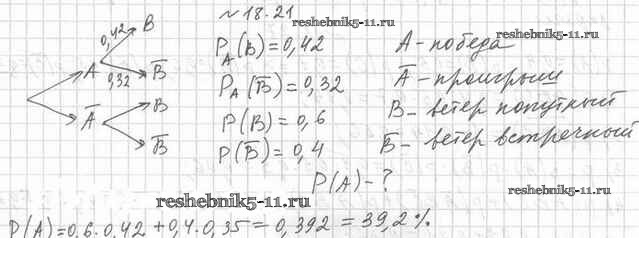 № 18.21
reshebnik5-11.ru
reshebnik5-11.ru
0,42
B
A
0,32
B̅
A̅
B
B̅
P_A(B)=0,42
P_A(B̅)=0,32
P(B)=0,6
P(B̅)=0,4
P(A)-?
A-победа
A̅-проигрыш
B-ветер попутный
B̅-ветер встречный
reshebnik5-11.ru
reshebnik5-11.ru
P(A)=0,6·0,42+0,4·0,35=0,392=39,2%